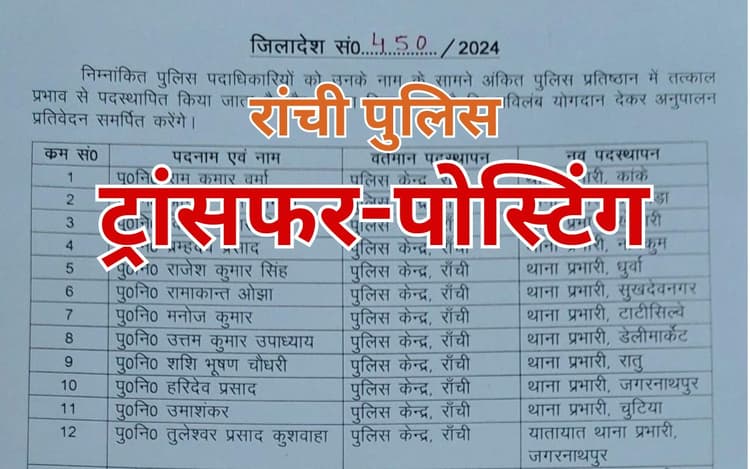 जिलादेश सं0 450 /2024
निम्नांकित पुलिस पदाधिकारियों को उनके नाम के सामने अंकित पुलिस प्रतिष्ठान में तत्काल
प्रभाव से पदस्थापित किया योगदान देकर अनुपालन
प्रतिवेदन समर्पित करेंगे।
रांची पुलिस
ट्रांसफर-पोस्टिंग
कम सं0 पदनाम एवं नाम वर्तमान पदस्थापन नव पदस्थापन
1 पु0नि0 राम कुमार वर्मा पुलिस केन्द्र, राँची थाना प्रभारी, कांके
2
3
4 पु0नि0 प्रसाद पुलिस केन्द्र, राँची थाना प्रभारी,
5 पु0नि0 राजेश कुमार सिंह पुलिस केन्द्र, राँची थाना प्रभारी, धुर्वा
6 पु0नि0 रामाकान्त ओझा पुलिस केन्द्र, राँची थाना प्रभारी, सुखदेवनगर
7 पु0नि0 मनोज कुमार पुलिस केन्द्र, राँची थाना प्रभारी, टाटीसिल्वे
8 पु0नि0 उत्तम कुमार उपाध्याय पुलिस केन्द्र, राँची थाना प्रभारी, डेलीमार्केट
9 पु0नि0 शशि भूषण चौधरी पुलिस केन्द्र, राँची थाना प्रभारी, रातु
10 पु0नि0 हरिदेव प्रसाद पुलिस केन्द्र, राँची थाना प्रभारी, जगरनाथपुर
11 पु0नि0 उमाशंकर पुलिस केन्द्र, राँची थाना प्रभारी, चुटिया
12 पु0नि0 तुलेश्वर प्रसाद कुशवाहा पुलिस केन्द्र, राँची यातायात थाना प्रभारी,
जगरनाथपुर